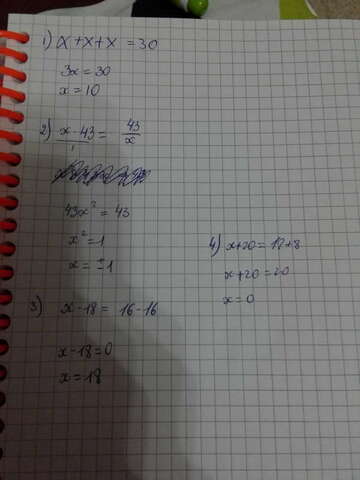 1) x + x + x = 30
3x = 30
x = 10
2) x · 43 = 43
1 x
43x² = 43
x² = 1
x = ±1
3) x - 18 = 16 - 16
x - 18 = 0
x = 18
4) x + 20 = 12 + 8
x + 20 = 20
x = 0